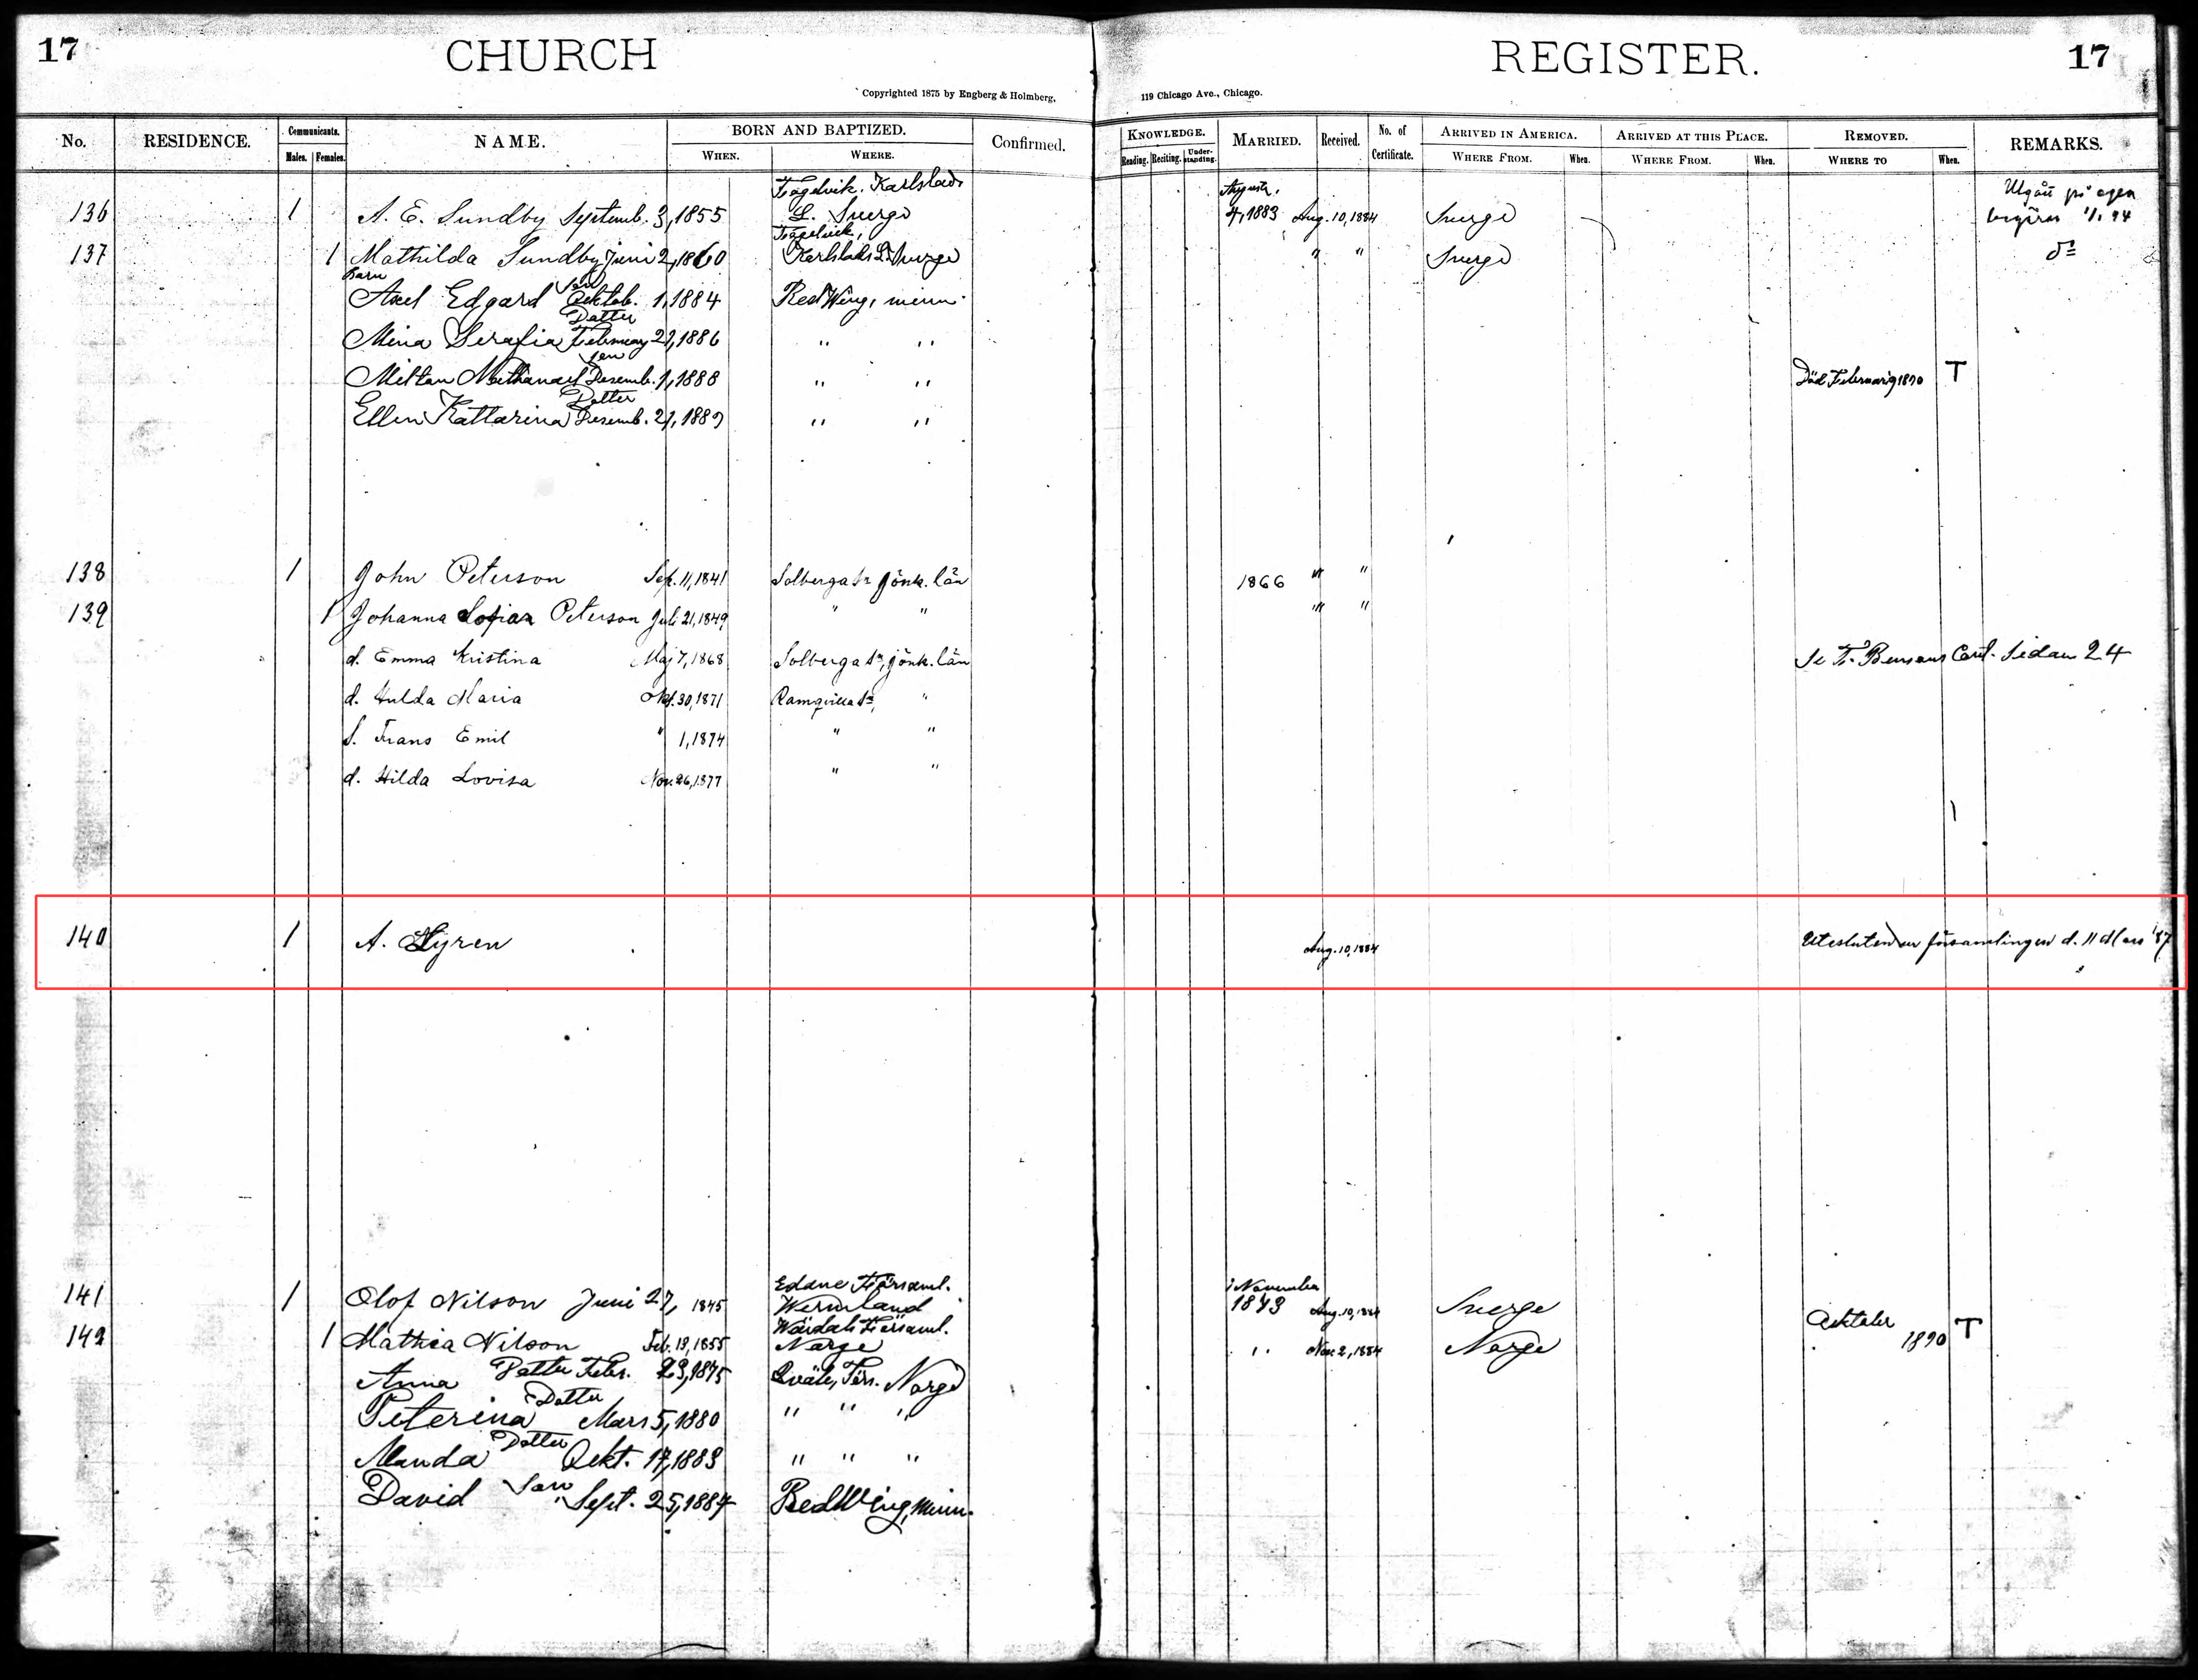 17 CHURCH REGISTER. 17
Copyrighted 1875 by Engberg & Holmberg, 119 Chicago Ave., Chicago.
No. RESIDENCE. Communicants. Males. Females. NAME. BORN AND BAPTIZED. WHEN. WHERE. Confirmed. KNOWLEDGE. Reading. Reciting. Under-standing. MARRIED. Received. No. of Certificate. ARRIVED IN AMERICA. WHERE FROM. When. ARRIVED AT THIS PLACE. WHERE FROM. When. REMOVED. WHERE TO When. REMARKS.
Karlstads August. Utgått på egen
136 1 A. E. Sundby Septemb. 3, 1855 L. Sverge 4, 1883 Aug. 10, 1884 Sverge begäran 1/1 94
137 1 Mathilda Sundby Juni 2, 1860 Karlstads L. Sverge " " Sverge do
Barn Son
Axel Edgard Oktob. 1, 1884 Red Wing, minn.
Datter
Mina Serafia February 21, 1886 " "
Son
Miltan Nathanael Desemb. 1, 1888 " " Död February 1890 T
Datter
Ellen Kattarina Desemb. 21, 1889 " "
138 1 John Peterson Sep. 11, 1841 Solberga Sn Jönk. län 1866 " "
139 1 Johanna Sofia Peterson Juli 21, 1849 " " " "
d. Emma Kristina Maj 7, 1868 Solberga Sn, Jönk. län Se F. Bensons Sidan 24
d. Hulda Maria Okt. 30, 1871 Ramqvilla Sn, "
S. Frans Emil " 1, 1874 " "
d. Hilda Lovisa Nov. 26, 1877 " "
140 1 A. Hyren Aug. 10, 1884 Utesluten ur församlingen d. 11 Mars '87
Edane Församl. November
141 1 Olof Nilson Juni 27, 1845 Wermland 1873 Aug. 10, 1884 Sverge
Församl.
142 1 Mathea Nilson Feb. 13, 1855 Norge " Nov. 2, 1884 Norge 1890 T
Anna Datter Febr. 23, 1875 Förs. Norge
Datter
Peterina Mars 5, 1880 " " "
Datter
Manda Oekt. 17, 1883 " " "
David Son Sept. 25, 1884 Red Wing, Minn.